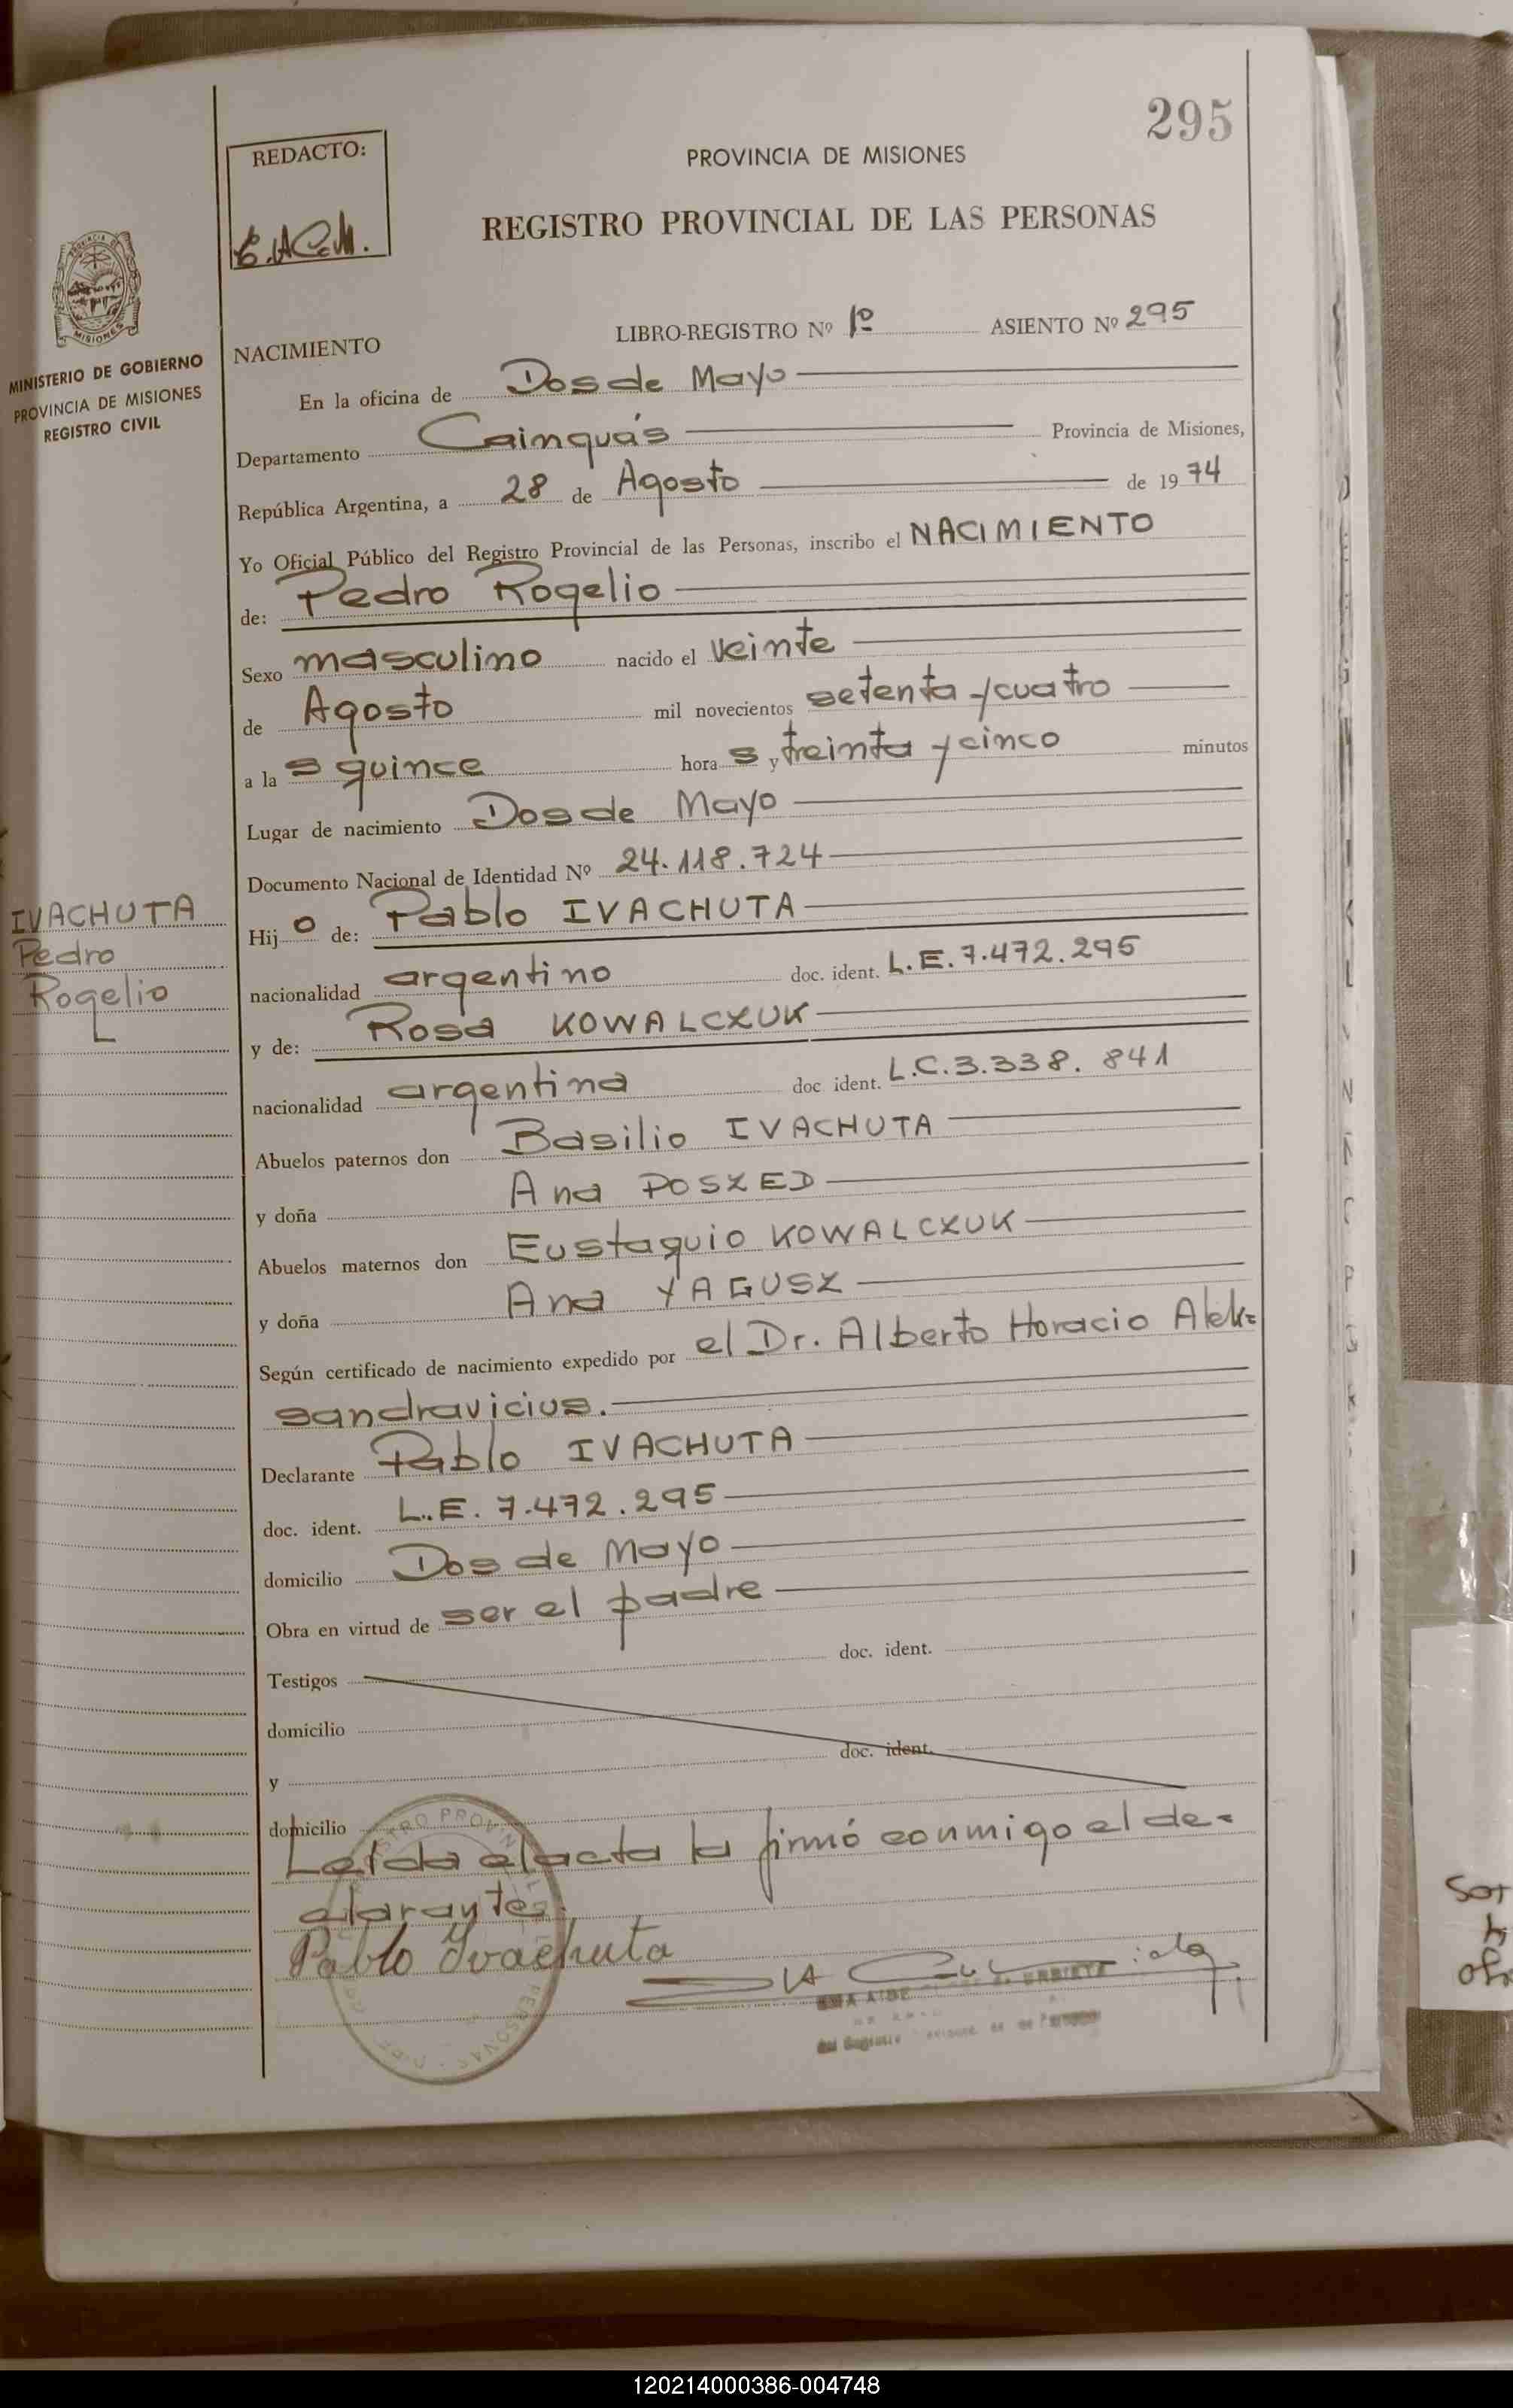 295
REDACTO:
PROVINCIA DE MISIONES
REGISTRO PROVINCIAL DE LAS PERSONAS
MISIONES
MINISTERIO DE GOBIERNO
PROVINCIA DE MISIONES
REGISTRO CIVIL
NACIMIENTO LIBRO-REGISTRO Nº 1º ASIENTO Nº 295
En la oficina de Dos de Mayo
Departamento Cainguás Provincia de Misiones,
República Argentina, a 28 de Agosto de 1974
Yo Oficial Público del Registro Provincial de las Personas, inscribo el NACIMIENTO
de: Pedro Rogelio
Sexo masculino nacido el veinte
de Agosto mil novecientos setenta y cuatro
a las quince horas y treinta y cinco minutos
Lugar de nacimiento Dos de Mayo
Documento Nacional de Identidad Nº 24.118.724
IVACHUTA
Pedro
Rogelio
Hijo de: Pablo IVACHUTA
nacionalidad argentino doc. ident. L.E. 7.472.295
y de: Rosa KOWALCZUK
nacionalidad argentina doc ident. L.C. 3.338.841
Abuelos paternos don Basilio IVACHUTA
y doña Ana POSZED
Abuelos maternos don Eustaquio KOWALCZUK
y doña Ana YAGUSZ
Según certificado de nacimiento expedido por el Dr. Alberto Horacio Alek=
sandravicius.
Declarante Pablo IVACHUTA
doc. ident. L.E. 7.472.295
domicilio Dos de Mayo
Obra en virtud de ser el padre
Testigos doc. ident.
domicilio
y doc. ident.
domicilio
Leída el acta la firmó conmigo el de=
clarante.
Pablo Ivachuta
120214000386-004748